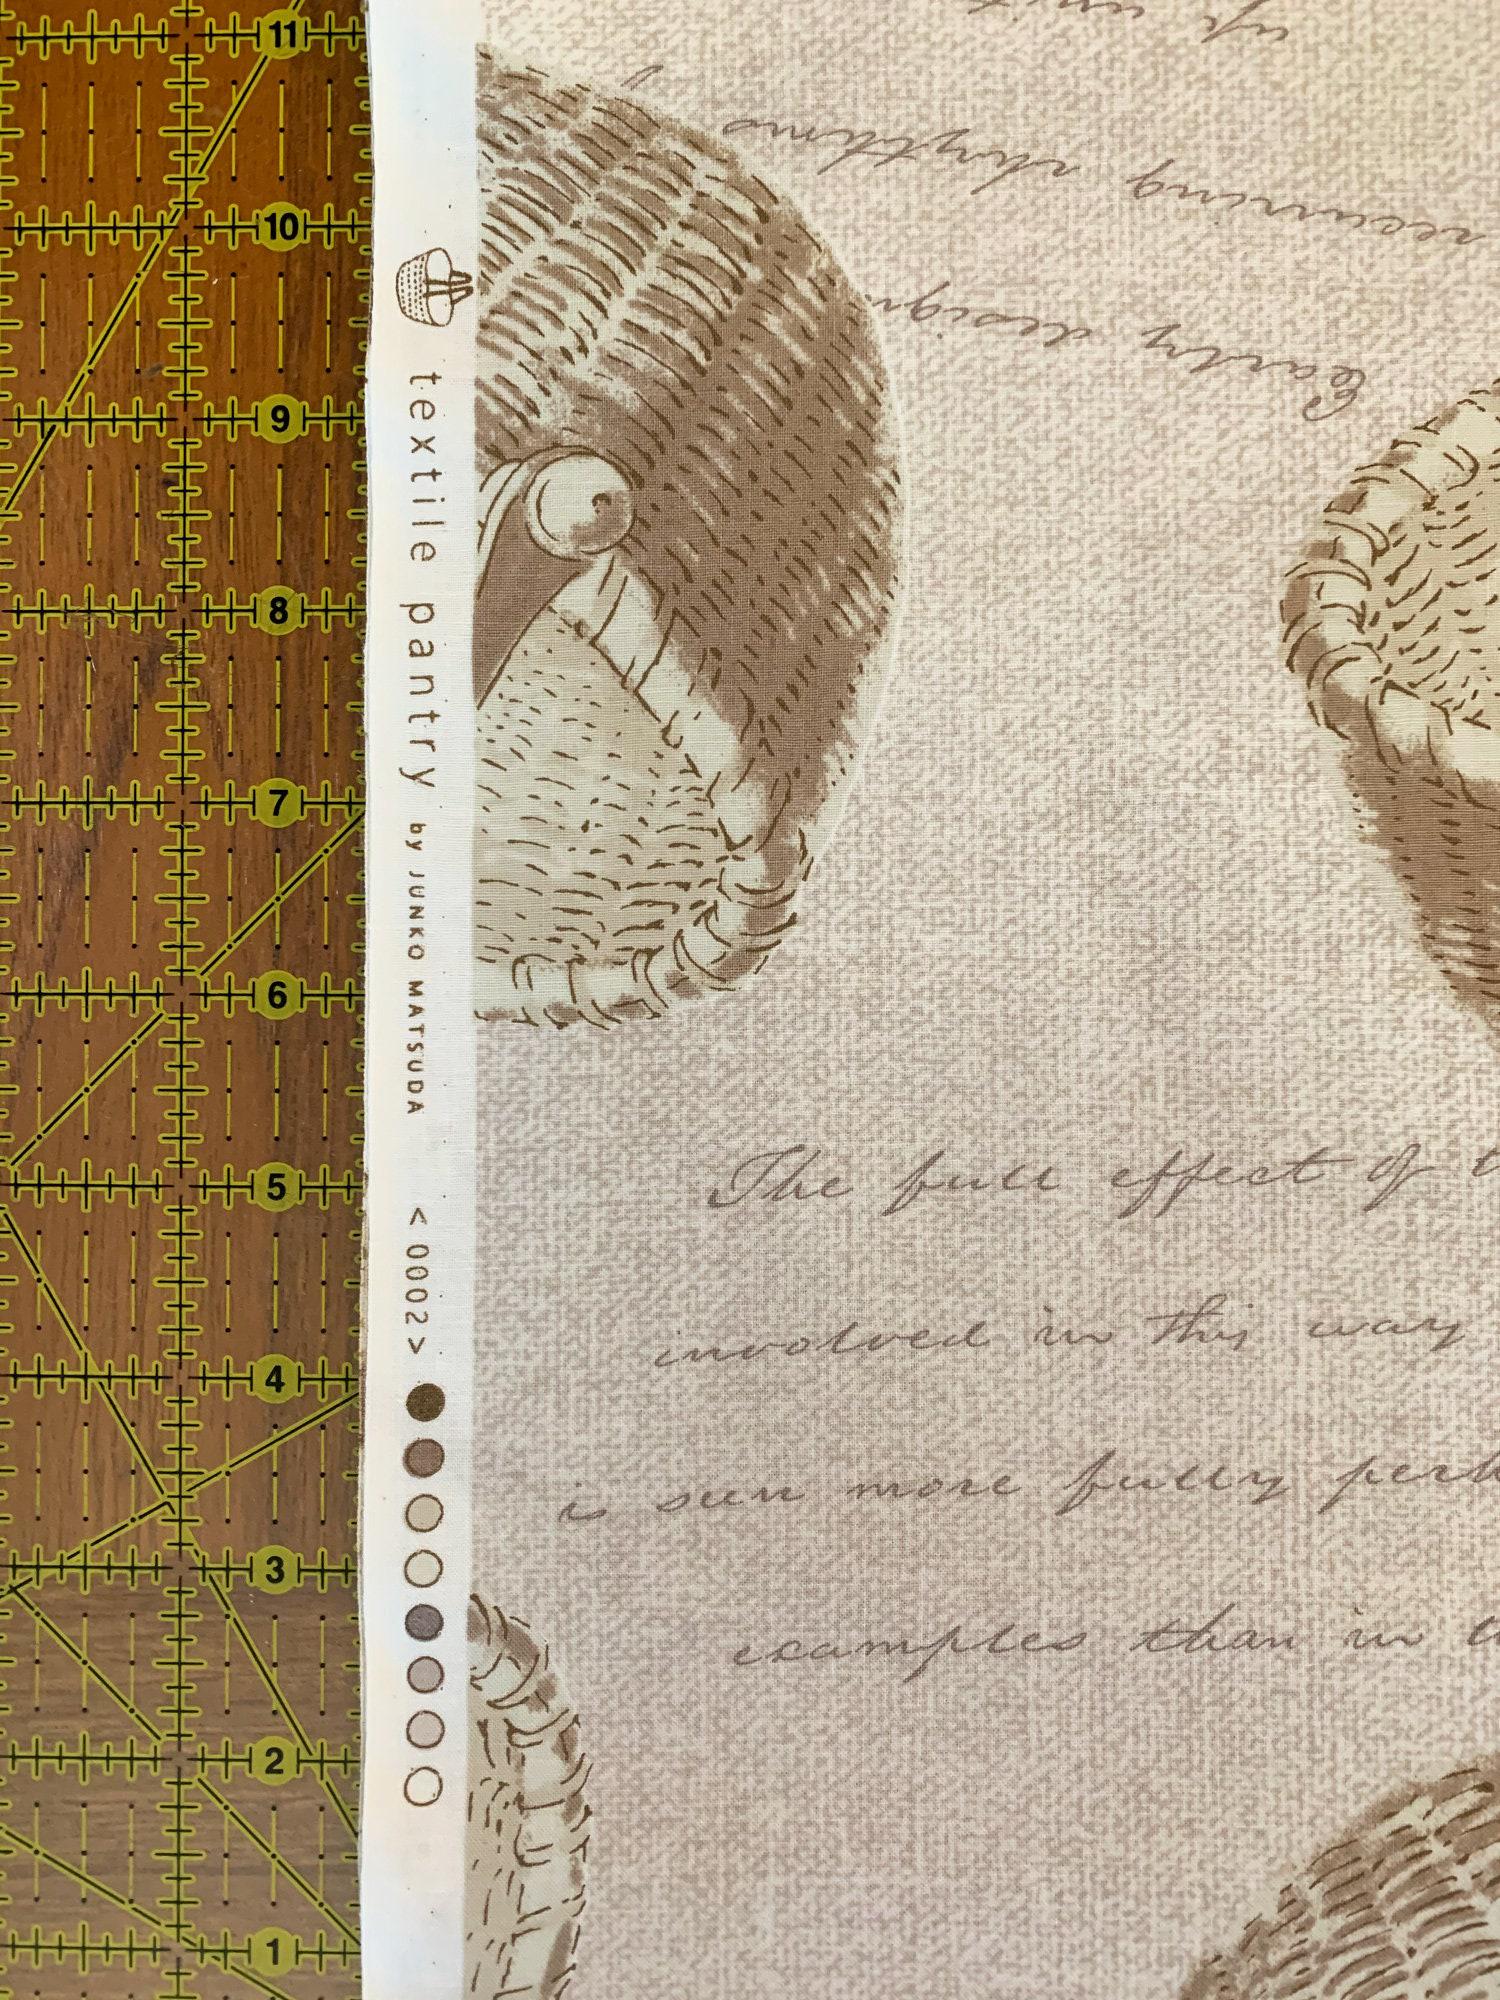 11
10
9
8
7
6
5
4
3
2
1
textile pantry by JUNKO MATSUDA <0002>
up unit
recurring rhythms
Early design
The full effect of
involved in this way
is seen more fully
examples than in